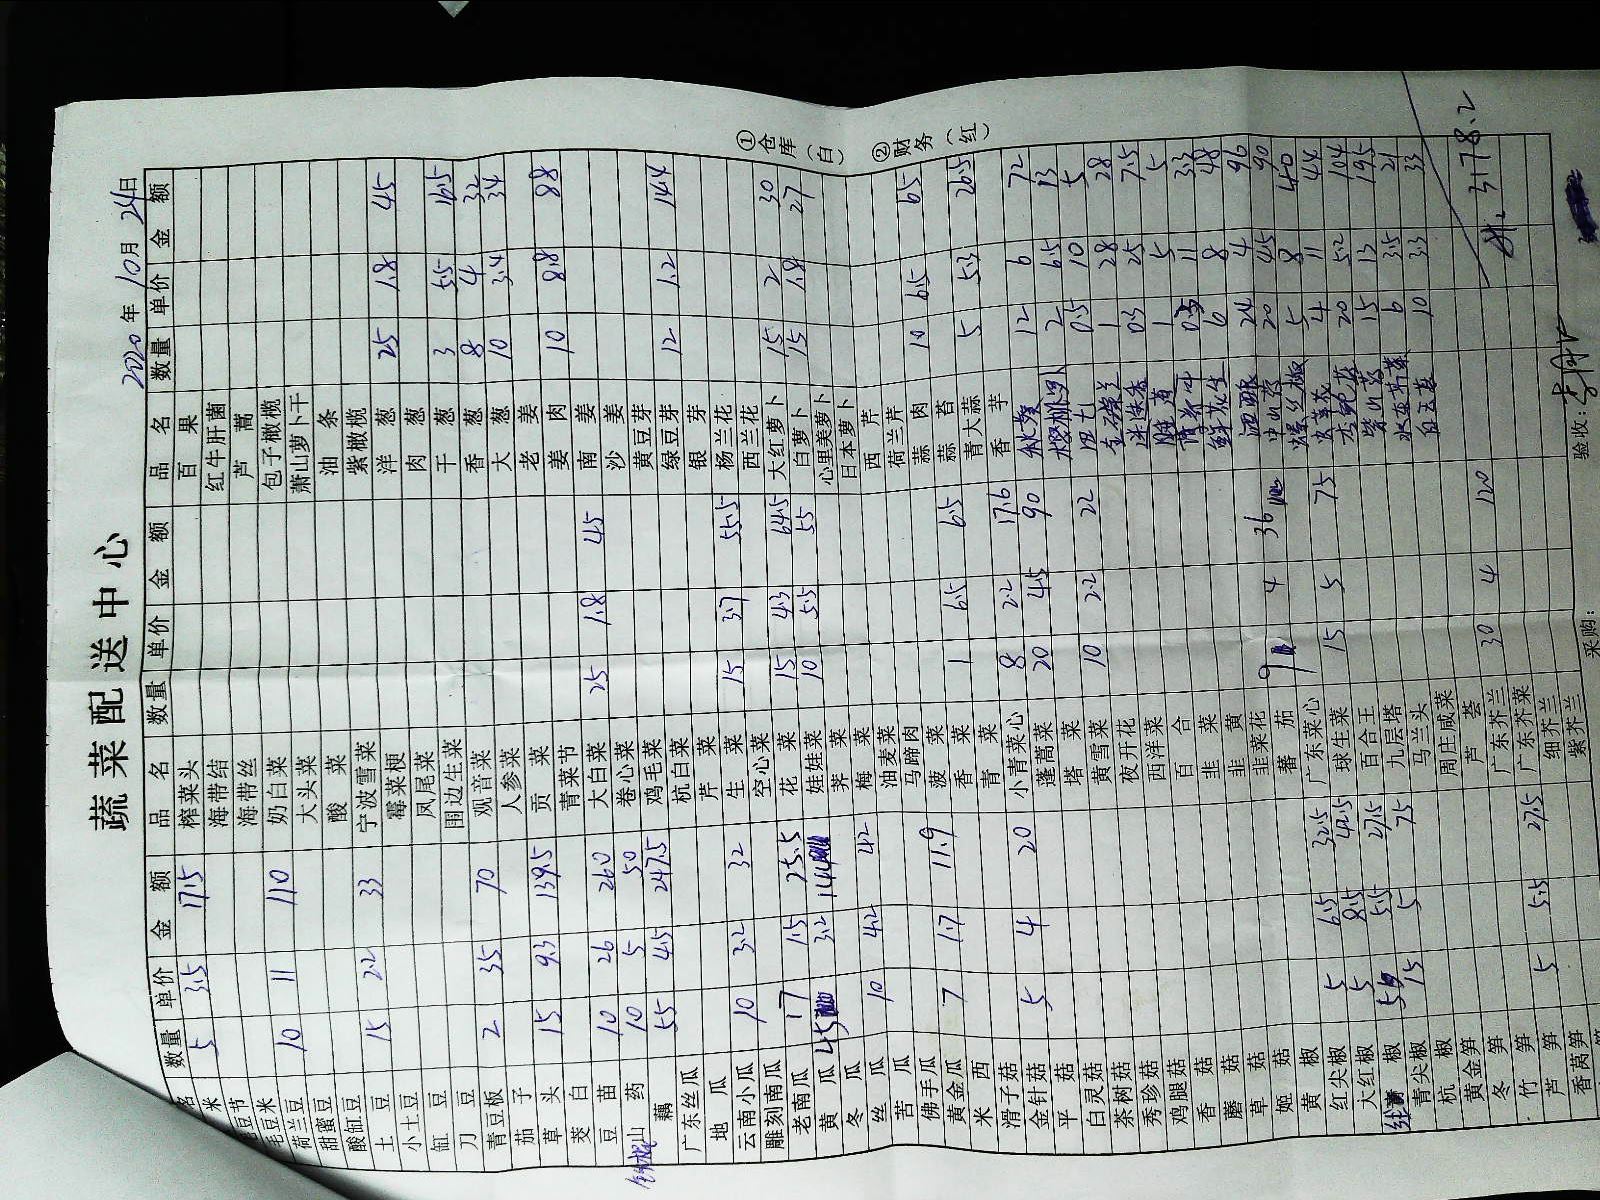 蔬菜配送中心
2020年10月24日
品名 数量 单价 金额
米 5 3.5 17.5
毛豆米 10 11 110
荷兰豆
甜蜜豆
酸缸豆
土豆 15 2.2 33
小土豆
缸豆
刀豆
青豆板 2 35 70
茄子
草头 15 9.3 139.5
茭白
豆苗 10 26 260
铁棍山药 10 5 50
藕 55 4.5 247.5
广东丝瓜
地瓜
云南小瓜 10 3.2 32
雕刻南瓜
老南瓜 17 1.5 25.5
黄瓜 45 3.2 144
冬瓜
丝瓜 10 4.2 42
苦瓜
佛手瓜
黄金瓜 7 1.7 11.9
米西
滑子菇
金针菇 5 4 20
平菇
白灵菇
茶树菇
秀珍菇
鸡腿菇
香菇
蘑菇
草菇
姬菇
黄椒
红尖椒 5 6.5 32.5
大红椒 5 8.5 42.5
椒 5 5.5 27.5
青尖椒 15 5 75
杭椒
黄金笋
冬笋
竹笋
芦笋 5 5.5 27.5
香莴笋
品名 数量 单价 金额
榨菜头
海带结
海带丝
奶白菜
大头菜
酸菜
宁波雪菜
霉菜梗
凤尾菜
围边生菜
观音菜
人参菜
贡菜
青菜节
大白菜 25 1.8 45
卷心菜
鸡毛菜
杭白菜
芹菜
生菜 15 3.7 55.5
空心菜
花菜 15 4.3 64.5
娃娃菜 10 5.5 55
荠菜
梅菜
油麦菜
马蹄肉
菠菜
香菜 1 6.5 6.5
青菜
小青菜心 8 2.2 17.6
蓬蒿菜 20 4.5 90
塔菜
黄雪菜 10 2.2 22
夜开花
西洋菜
百合
韭菜
韭黄
韭菜花
蕃茄 9 4 36
广东菜心
球生菜 15 5 75
百合王
九层塔
马兰头
周庄咸菜
芦荟
广东芥兰 30 4 120
广东芥菜
细芥兰
紫芥兰
品名 数量 单价 金额
百果
红牛肝菌
芦蒿
包子橄榄
萧山萝卜干
油条
紫橄榄
洋葱 25 1.8 45
肉葱
干葱 3 5.5 16.5
香葱 8 4 32
大葱 10 3.4 34
老姜
姜肉 10 8.8 88
南姜
沙姜
黄豆芽
绿豆芽 12 1.2 14.4
银芽
杨兰花
西兰花
大红萝卜 15 2 30
白萝卜 15 1.8 27
心里美萝卜
日本萝卜
西芹
荷兰芹
蒜肉 10 6.5 65
蒜苔
青大蒜 5 5.3 26.5
香芋
秋葵 12 6 72
樱桃萝卜 2 6.5 13
0.5 10 5
1 28 28
迷迭香 0.3 25 7.5
1 5 5
11 33
鲜花生 6 8 48
24 4 96
中山药 20 4.5 90
螺丝椒 5 8 40
4 11 44
杏鲍菇 20 5.2 104
紫山药 15 13 195
水东芥菜 6 3.5 21
白玉菇 10 3.3 33
3178.2
①仓库（白）
②财务（红）
采购：
验收：